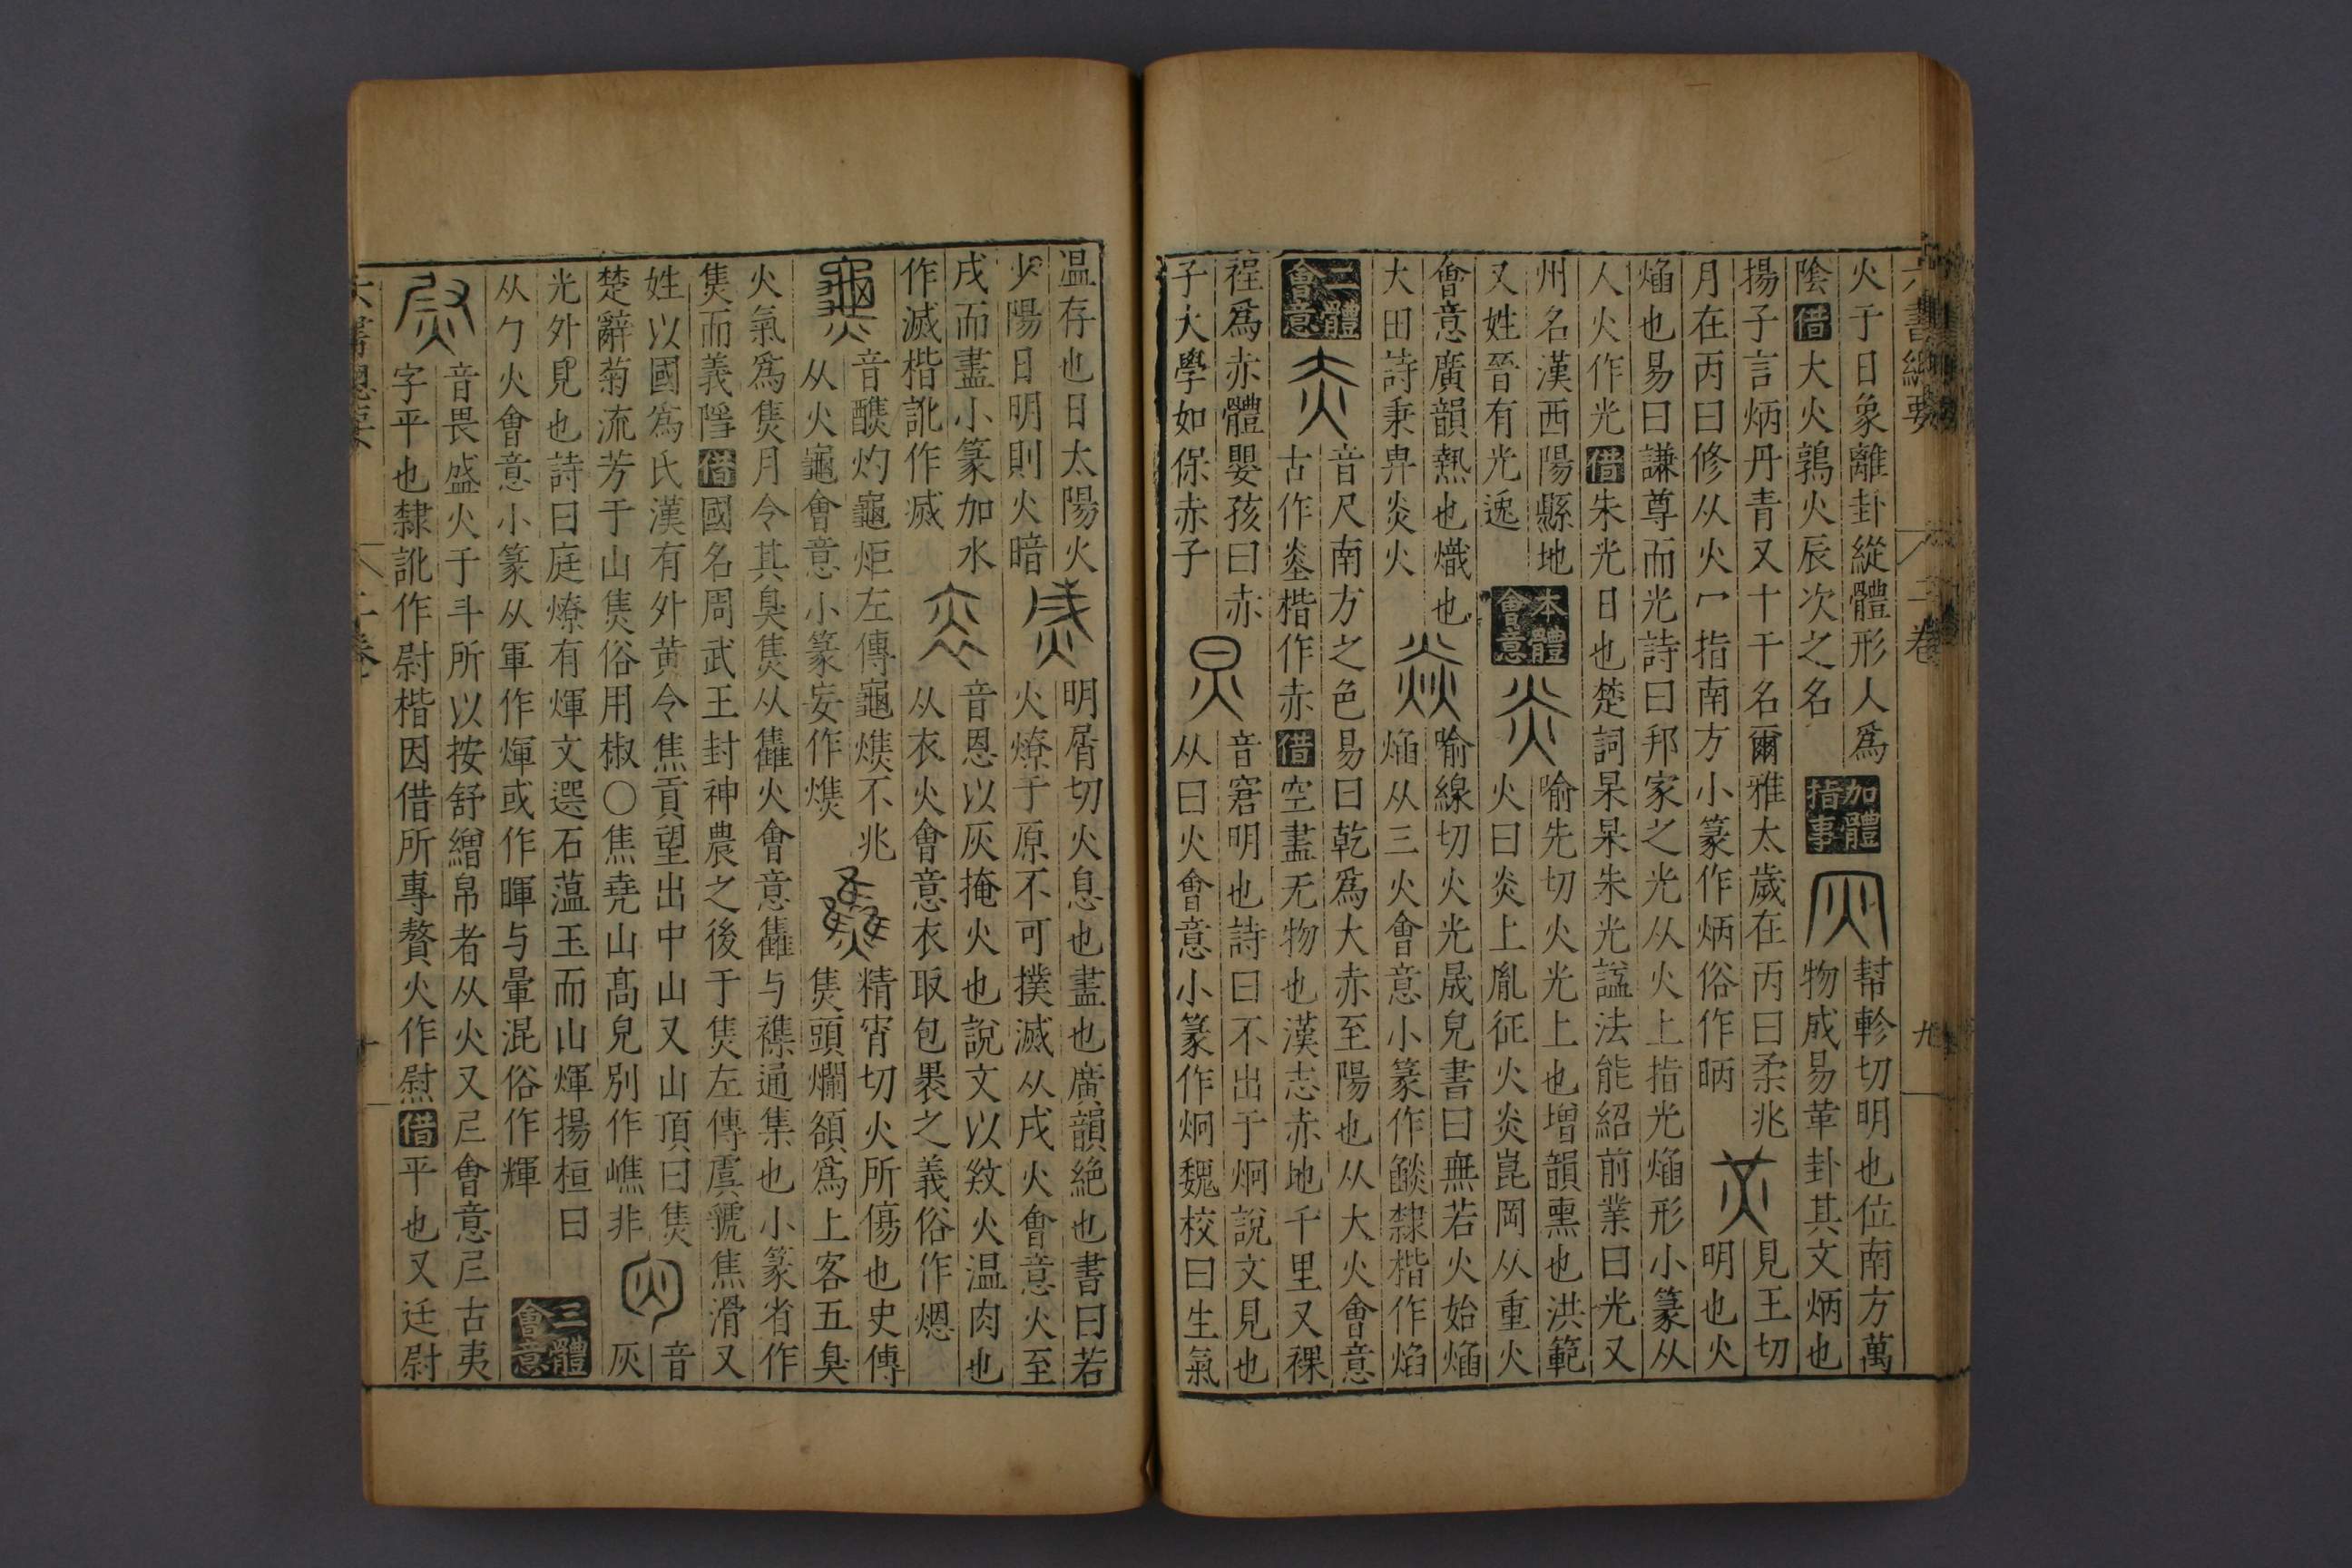 六書總要 二卷 九
火于日象離卦縱體形人爲
陰借大火鶉火辰次之名
加體指事
幫軫切明也位南方萬
物成易革卦其文炳也
揚子言炳丹青又十干名爾雅太歲在丙曰柔兆
月在丙曰修从火冖指南方小篆作炳俗作昞
見王切
明也火
焰也易曰謙尊而光詩曰邦家之光从火上指光焰形小篆从
人火作光借朱光日也楚詞杲杲朱光諡法能紹前業曰光又
州名漢西陽縣地
又姓晉有光逸
本體會意
炎
喻先切火光上也增韻熏也洪範
火曰炎上胤征火炎崑岡从重火
會意廣韻熱也熾也
大田詩秉畀炎火
焱
喻線切火光晟皃書曰無若火始焰
焰从三火會意小篆作燄隸楷作焰
二體會意
赤
音尺南方之色易曰乾爲大赤至陽也从大火會意
古作烾楷作赤借空盡无物也漢志赤地千里又裸
裎爲赤體嬰孩曰赤
子大學如保赤子
炅
音窘明也詩曰不出于炯說文見也
从日火會意小篆作炯魏校曰生氣
温存也日太陽火
少陽日明則火暗
烕
明屑切火息也盡也廣韻絶也書曰若
火燎于原不可撲滅从戌火會意火至
戌而盡小篆加水
作滅楷訛作烕
音恩以灰掩火也說文以火温肉也
从衣火會意衣取包褁之義俗作煾
音醮灼龜炬左傳龜爑不兆
从火龜會意小篆妄作爑
精宵切火所傷也史傳
焦頭爛額爲上客五臭
火氣爲焦月令其臭焦从雥火會意雥与襍通集也小篆省作
焦而義隆借國名周武王封神農之後于焦左傳虞虢焦滑又
姓以國爲氏漢有外黄令焦貢望出中山又山頂曰焦
楚辭菊流芳于山焦俗用椒〇焦堯山高皃別作嶕非
音
灰
光外見也詩曰庭燎有煇文選石藴玉而山煇揚桓曰
从勹火會意小篆从軍作煇或作暉与暈混俗作輝
三體會意
音畏盛火于斗所以按舒繒帛者从火又𡰥會意𡰥古夷
字平也隸訛作尉楷因借所專贅火作慰借平也又廷尉
六書總要 二卷 十